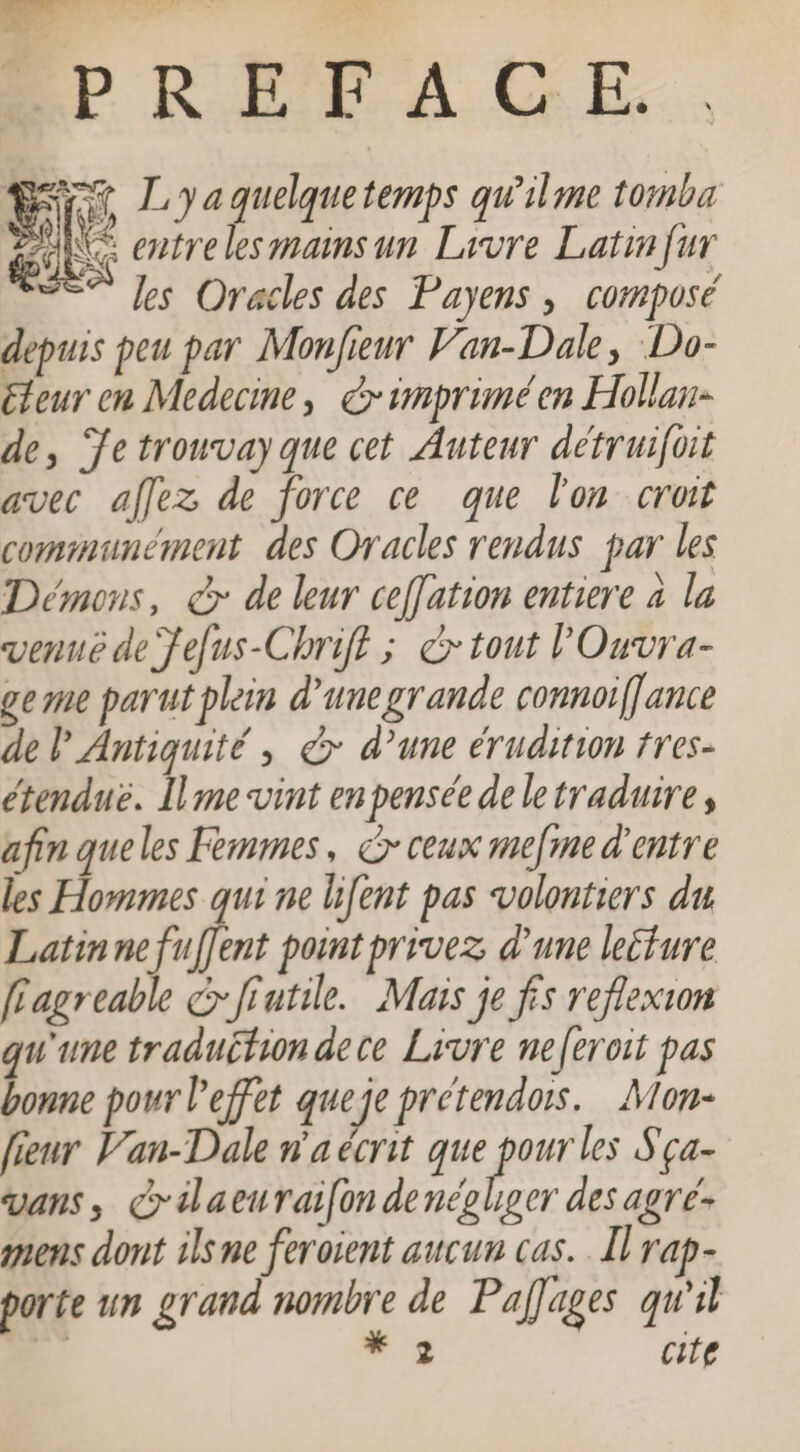 PREFACE.
IL y a quelque temps qu'il me tomba
entre les mains un Livre Latin ſur
les Oracles des Payens, composé
depuis peu par Monſieur Van-Dale, Do-
cteur en Medecine, & imprimé en Hollan-
de, Je trouvay que cet Auteur détruiſoit
avec aſſez de force ce que l'on croit
communément des Oracles rendus par les
Démons, & de leur ceſſation entiere à la
venuë de Jeſus-Chriſt; & tout l'Ouvra-
ge me parut plein d'une grande connoiſſance
de l'Antiquité, & d'une érudition tres-
étenduë. Il me vint en pensée de le traduire,
afin que les Femmes, & ceux meſme d'entre
les Hommes qui ne liſent pas volontiers du
Latin ne fuſſent point privez d'une lecture
ſi agreable & ſi utile. Mais je fis reflexion
qu'une traduction de ce Livre ne ſeroit pas
bonne pour l'effet que je prétendois. Mon-
ſieur Van-Dale n'a écrit que pour les Sça-
vans, & il a eu raiſon de négliger des agré-
mens dont ils ne feroient aucun cas. Il rap-
porte un grand nombre de Paſſages qu'il
* 2 cite